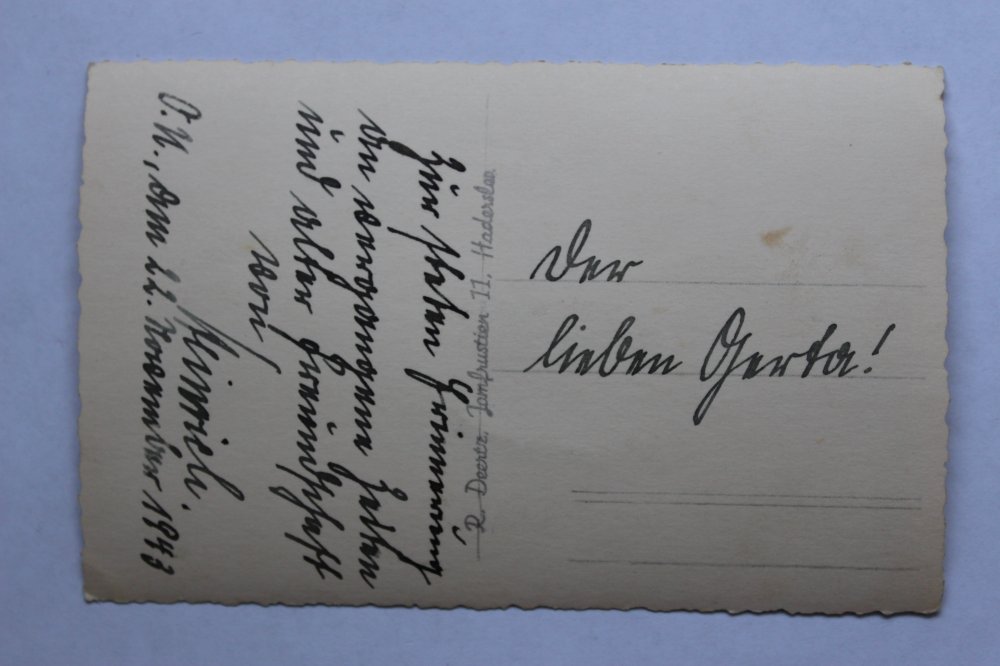 Der
lieben Gerta!
R. Deertz, Jomfrustien 11, Haderslev
Zur steten Erinnerung
an vergangene Zeiten
und alter Freundschaft
von
O.U., den 22. November 1943